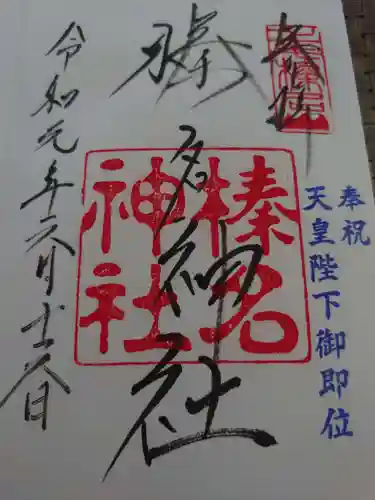 奉拝
奉祝
天皇陛下御即位
榛名神社
榛名神社
令和元年六月 日